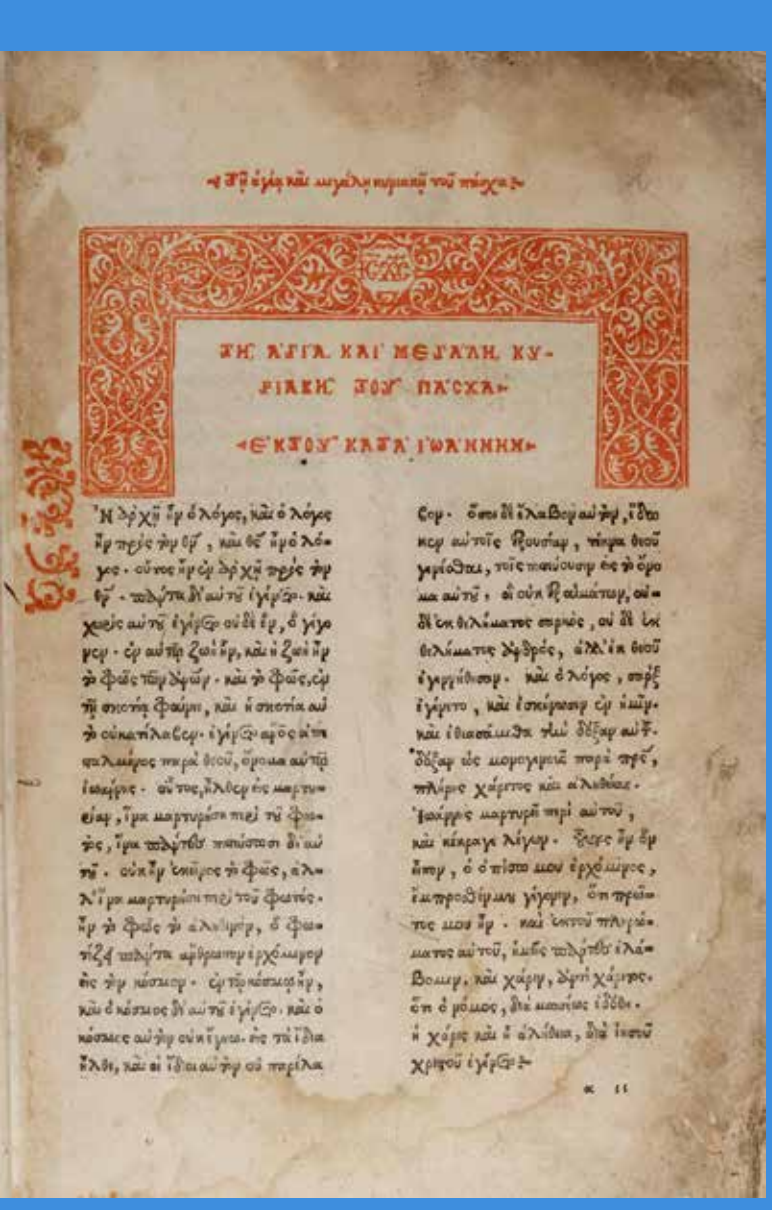 Τῇ ἁγίᾳ καὶ μεγάλῃ κυριακῇ τοῦ πάσχα
ΤΗ͂ ἉΓΊΑ ΚΑῚ ΜΕΓΆΛΗ ΚΥ-
ΡΙΑΚΗ͂ ΤΟΥ͂ ΠΆΣΧΑ
ἘΚ ΤΟΥ͂ ΚΑΤᾺ ἸΩΆΝΝΗΝ
Ἐν ἀρχῇ ἦν ὁ λόγος, καὶ ὁ λόγος
ἦν πρὸς τὸν θν̅, καὶ θς̅ ἦν ὁ λό-
γος. οὗτος ἦν ἐν ἀρχῇ πρὸς τὸν
θν̅. πάντα δι' αὐτοῦ ἐγένετο. καὶ
χωρὶς αὐτοῦ ἐγένετο οὐδὲ ἓν, ὃ γέγο
νεν. ἐν αὐτῷ ζωὴ ἦν, καὶ ἡ ζωὴ ἦν
τὸ φῶς τῶν ἀνων. καὶ τὸ φῶς, ἐν
τῇ σκοτίᾳ φαίνει, καὶ ἡ σκοτία αὐ
τὸ οὐ κατέλαβεν. ἐγένετο ἄνος ἀπε
σταλμένος παρὰ θεοῦ, ὄνομα αὐτῷ
ἰωάννης. οὗτος, ἦλθεν εἰς μαρτυ-
ρίαν, ἵνα μαρτυρήσῃ περὶ τοῦ φω-
τὸς, ἵνα πάντες πιστεύσωσι δι' αὐ
τοῦ. οὐκ ἦν ἐκεῖνος τὸ φῶς, ἀλ-
λ' ἵνα μαρτυρήσῃ περὶ τοῦ φωτός.
ἦν τὸ φῶς τὸ ἀληθινὸν, ὃ φω-
τίζει πάντα ἄνθρωπον ἐρχόμενον
εἰς τὸν κόσμον. ἐν τῷ κόσμῳ ἦν,
καὶ ὁ κόσμος δι' αὐτοῦ ἐγένετο. καὶ ὁ
κόσμος αὐτὸν οὐκ ἔγνω. εἰς τὰ ἴδια
ἦλθε, καὶ οἱ ἴδιοι αὐτὸν οὐ παρέλα
βον. ὅσοι δὲ ἔλαβον αὐτὸν, ἔδω
κεν αὐτοῖς ἐξουσίαν, τέκνα θεοῦ
γενέσθαι, τοῖς πιστεύουσιν εἰς τὸ ὄνο
μα αὐτοῦ. οἳ οὐκ ἐξ αἱμάτων, οὐ-
δὲ ἐκ θελήματος σαρκὸς, οὐδὲ ἐκ
θελήματος ἀνδρός, ἀλλ' ἐκ θεοῦ
ἐγεννήθησαν. καὶ ὁ λόγος, σὰρξ
ἐγένετο, καὶ ἐσκήνωσεν ἐν ἡμῖν.
καὶ ἐθεασάμεθα τὴν δόξαν αὐτοῦ.
δόξαν ὡς μονογενοῦς παρὰ πρς̅,
πλήρης χάριτος καὶ ἀληθείας.
Ἰωάννης μαρτυρεῖ περὶ αὐτοῦ,
καὶ κέκραγε λέγων. οὗτος ἦν ὃν
εἶπον, ὁ ὀπίσω μου ἐρχόμενος,
ἔμπροσθέν μου γέγονεν, ὅτι πρῶ-
τός μου ἦν. καὶ ἐκ τοῦ πληρώ-
ματος αὐτοῦ, ἡμεῖς πάντες ἐλά-
βομεν, καὶ χάριν, ἀντὶ χάριτος.
ὅτι ὁ νόμος, διὰ μωσέως ἐδόθη.
ἡ χάρις καὶ ἡ ἀλήθεια, διὰ ἰησοῦ
χριστοῦ ἐγένετο
α ιι